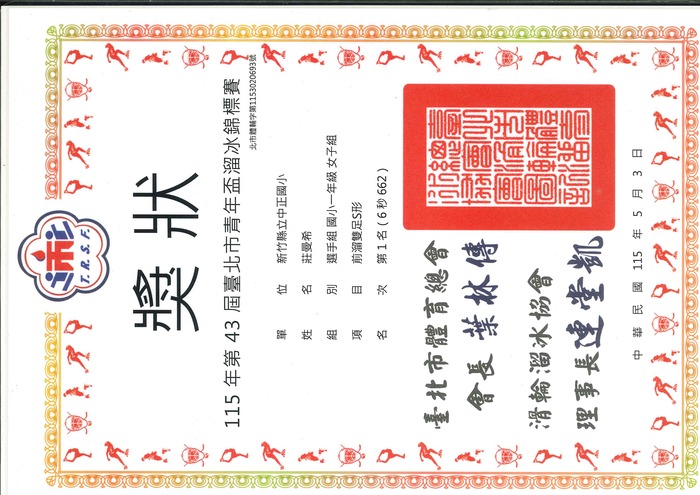 T.R.S.F.
獎狀
115 年第 43 屆臺北市青年盃溜冰錦標賽
北市體輔字第1153020693號
單位 新竹縣立中正國小
姓名 莊曼希
組別 選手組 國小一年級 女子組
項目 前溜雙足S形
名次 第 1 名 ( 6 秒 662 )
臺北市體育總會
會長 葉林傳
滑輪溜冰協會
理事長 連堂凱
中華民國 115 年 5 月 3 日